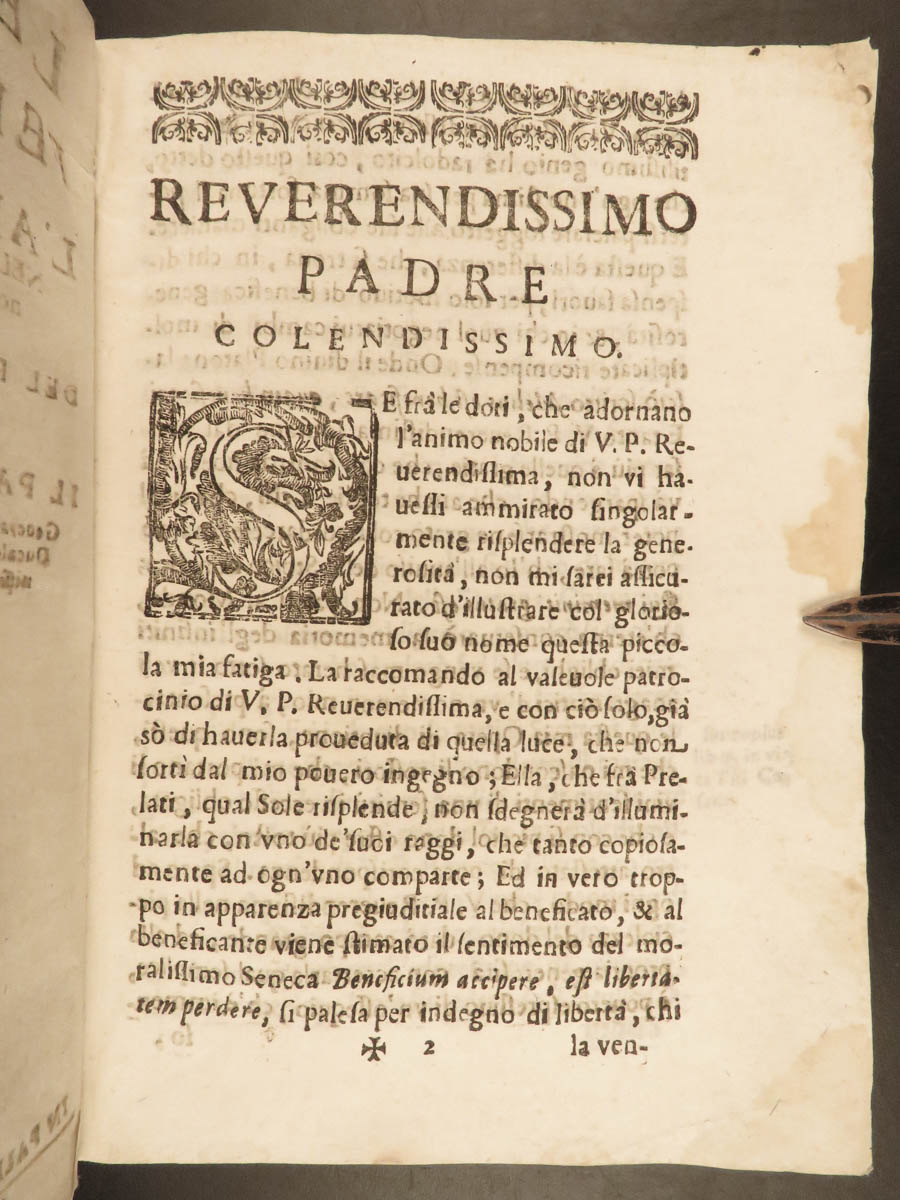 REVERENDISSIMO
PADRE
COLENDISSIMO.
SE frà le doti, che adornano
l'animo nobile di V. P. Re-
uerendiſſima, non vi ha-
ueſſi ammirato ſingolar-
mente riſplendere la gene-
roſità, non mi ſarei aſſicu-
rato d'illuſtrare col glorio-
ſo ſuo nome queſta picco-
la mia fatiga. La raccomando al valeuole patro-
cinio di V. P. Reuerendiſſima, e con ciò ſolo, già
sò di hauerla proueduta di quella luce, che non
ſortì dal mio pouero ingegno; Ella, che frà Pre-
lati, qual Sole riſplende, non ſdegnerà d'illumi-
narla con vno de' ſuoi raggi, che tanto copioſa-
mente ad ogn'vno comparte; Ed in vero trop-
po in apparenza pregiuditiale al beneficato, & al
beneficante viene ſtimato il ſentimento del mo-
raliſſimo Seneca Beneficium accipere, eſt liberta-
tem perdere, ſi paleſa per indegno di libertà, chi
✠ 2 la ven-